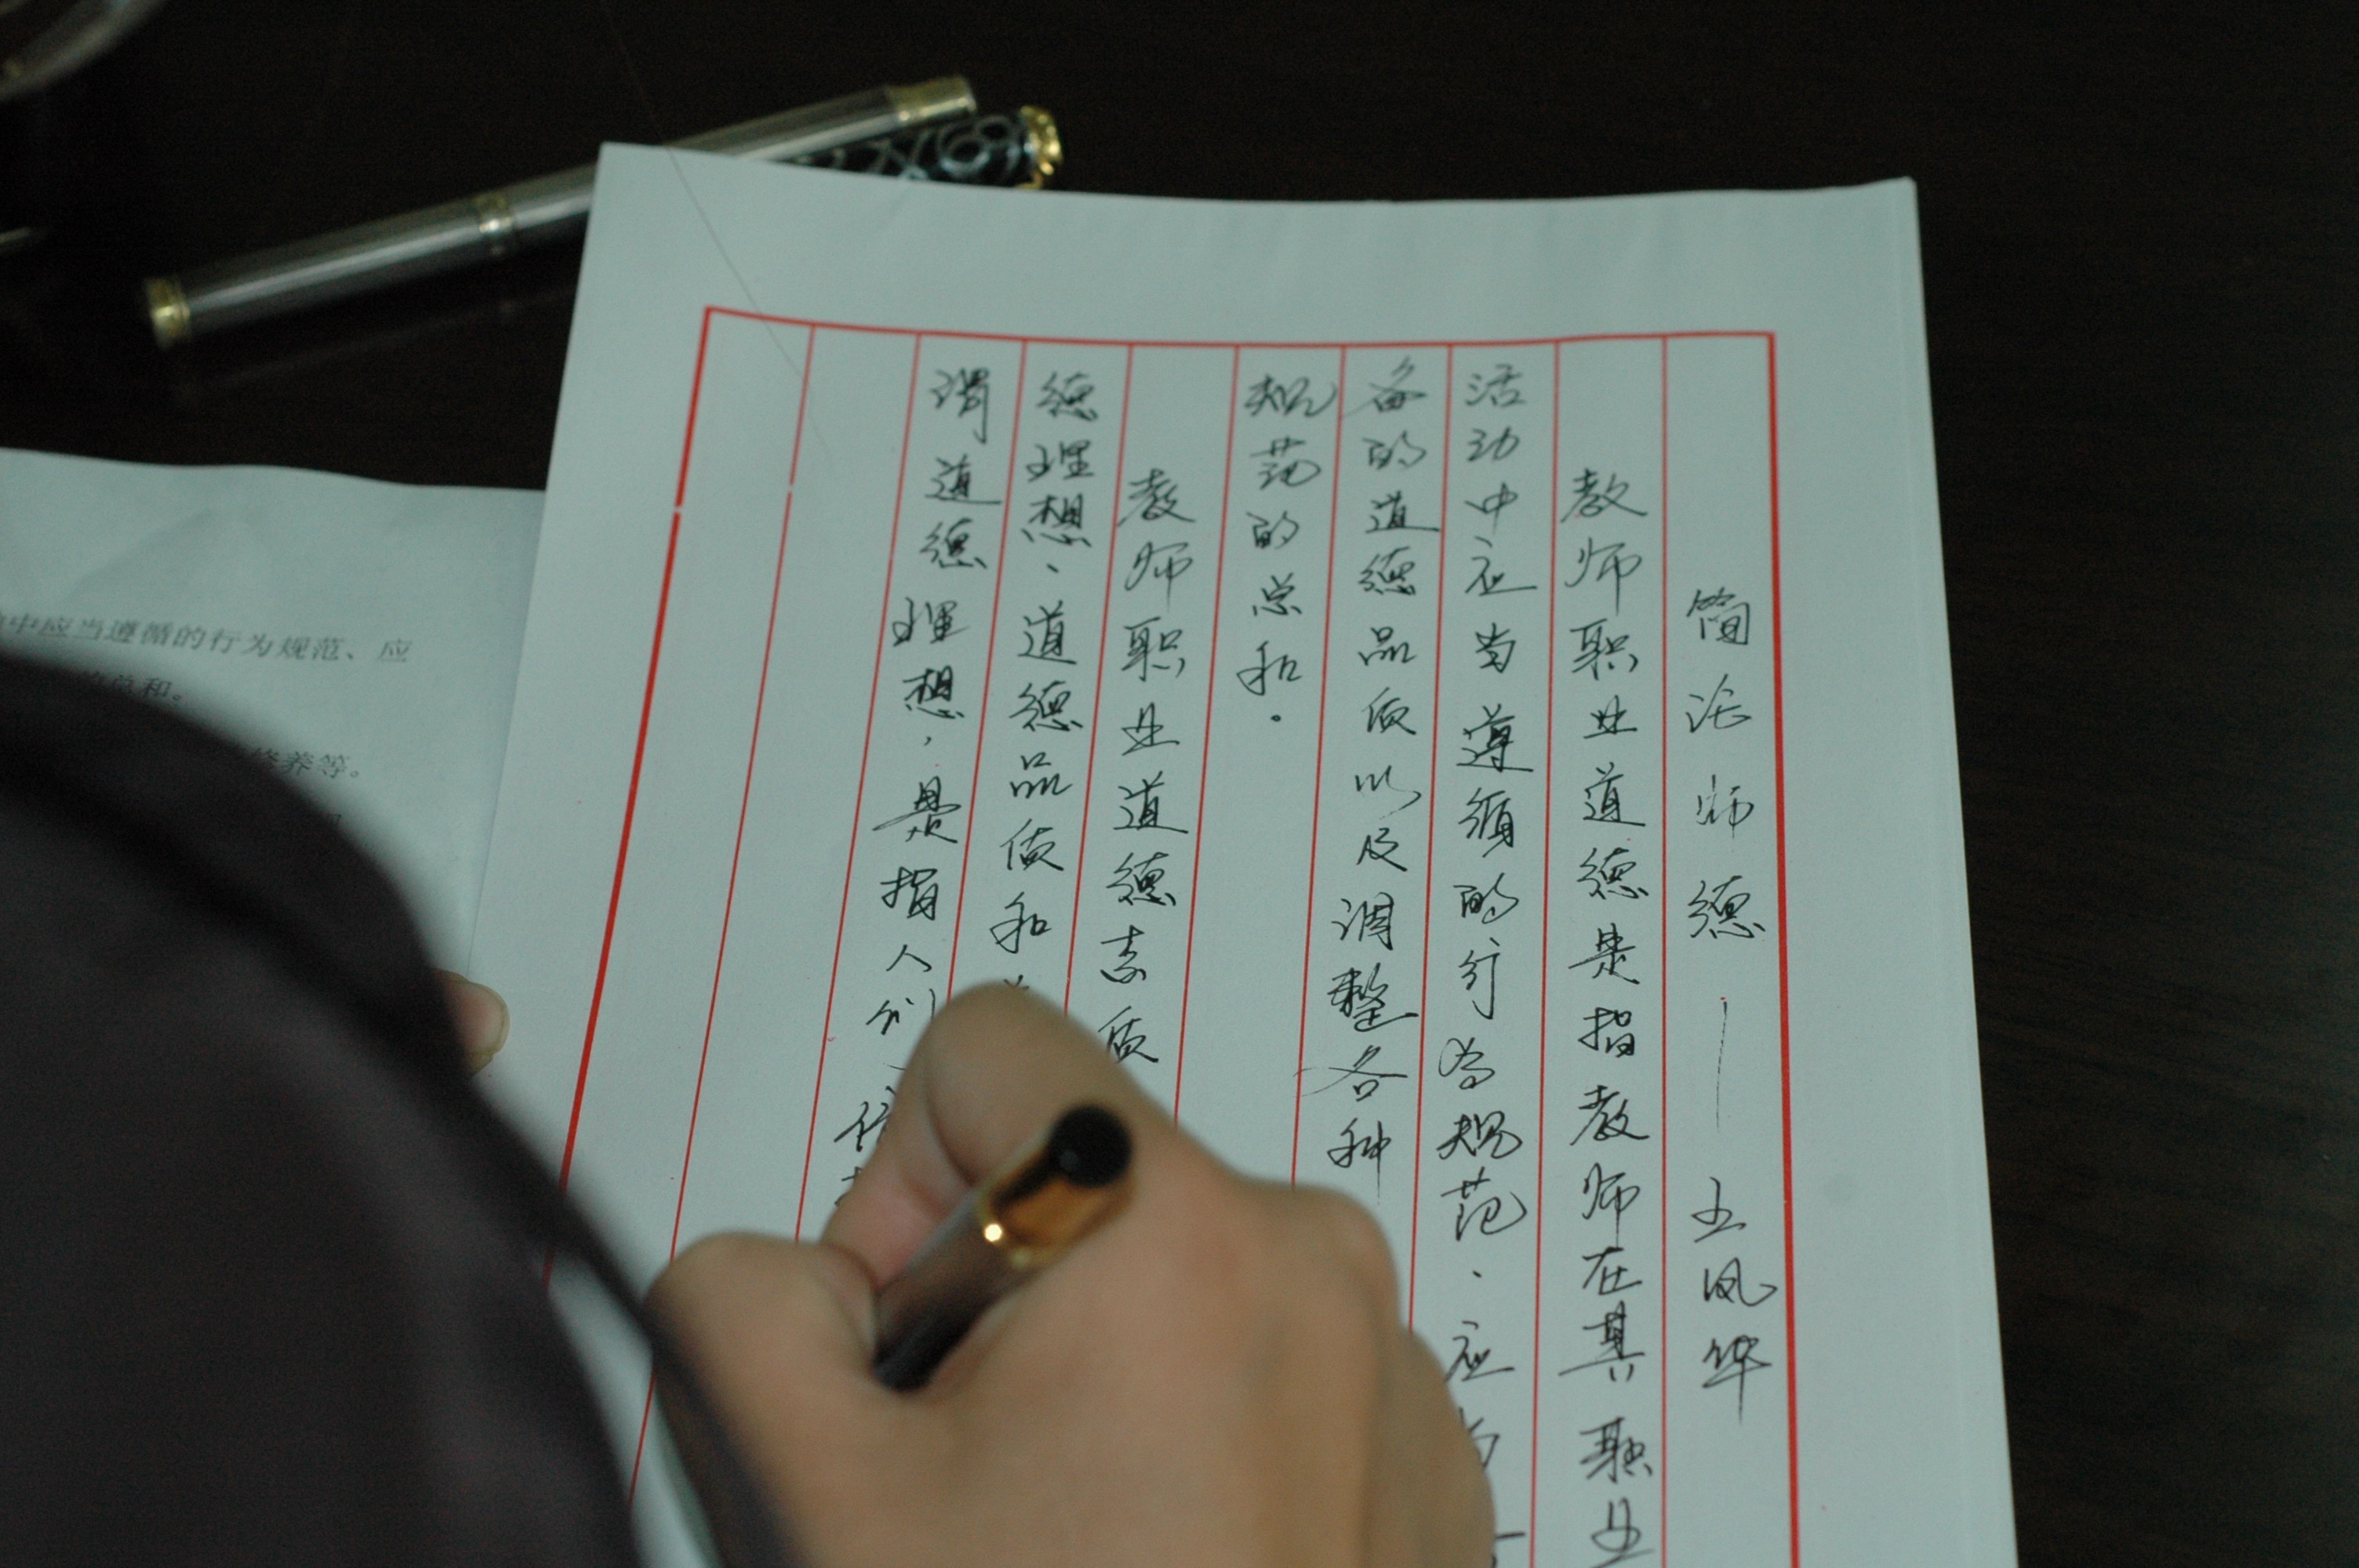 简论师德——王凤华
教师职业道德是指教师在其职业
活动中应当遵循的行为规范、应
备的道德品质以及调整各种
规范的总和。
教师职业道德素质
德理想、道德品质和
谓道德理想，是指人们
中应当遵循的行为规范、应
总和。
修养等。